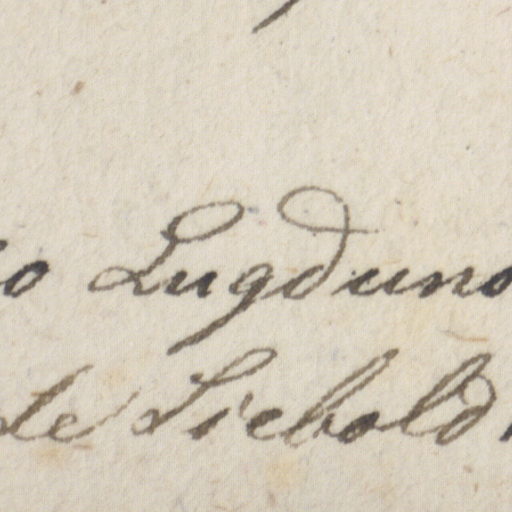 o Lugduno
de Siebold